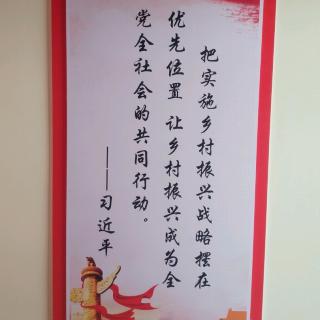 把实施乡村振兴战略摆在
优先位置 让乡村振兴成为全
党全社会的共同行动。
——习近平